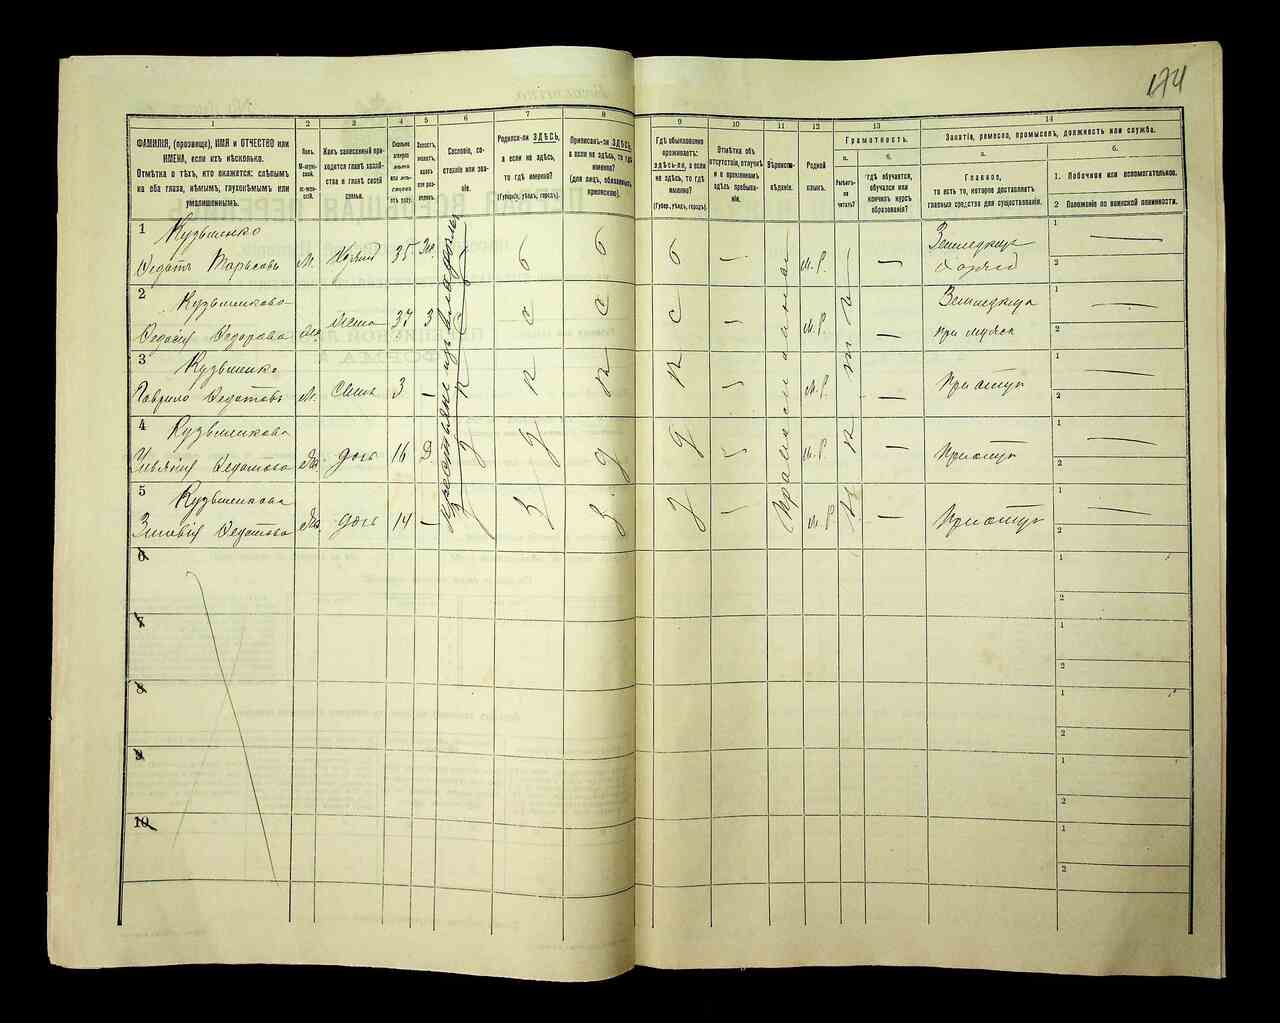 174
1
2
3
4
5
6
7
8
9
10
11
12
13
14
ФАМИЛІЯ, (прозвище), ИМЯ и ОТЧЕСТВО или
ИМЕНА, если ихъ нѣсколько.
Отмѣтка о тѣхъ, кто окажется: слѣпымъ
на оба глаза, нѣмымъ, глухонѣмымъ или
умалишеннымъ.
Полъ.
Какъ записанный при-
ходится главѣ хозяй-
ства и главѣ своей
семьи.
Сословіе, со-
стояніе или зва-
ніе.
Родился-ли ЗДѢСЬ,
а если не здѣсь,
то гдѣ именно?
(Губернія, уѣздъ, городъ).
Приписанъ-ли ЗДѢСЬ,
а если не здѣсь, то гдѣ
именно?
(для лицъ, обязанныхъ
припискою).
Гдѣ обыкновенно
проживаетъ:
здѣсь-ли, а если
не здѣсь, то гдѣ
именно?
(Губер., уѣздъ, городъ).
Отмѣтка объ
отсутствіи, отлучкѣ
и о временномъ
здѣсь пребыва-
ніи.
Вѣроиспо-
вѣданіе.
Родной
языкъ.
Грамотность.
а.
Умѣетъ-
ли
читать?
б.
гдѣ обучается,
обучался или
кончилъ курсъ
образованія?
Занятіе, ремесло, промыселъ, должность или служба.
а.
Главное,
то есть то, которое доставляетъ
главныя средства для существованія.
б.
1. Побочное или вспомогательное.
2 Положеніе по воинской повинности.
1
Кузьменко
Федотъ Тарасовъ
м.
Хозяинъ
35
Крестьяне изъ владѣльч.
Здѣсь
Здѣсь
Здѣсь
Православное
М. Р.
Нѣтъ
Земледѣлецъ
Хозяинъ
1
2
2
Кузьменкова
Федосія Федорова
Жен
Жена
37
З
М. Р.
Земледѣлица
при мужѣ
1
2
3
Кузьменко
Гаврило Федотовъ
м.
Сынъ
3
М. Р.
При отцѣ
1
2
4
Кузьменкова
Ульянія Федотова
Жен
дочь
16
Д
М. Р.
При отцѣ
1
2
5
Кузьменкова
Зиновія Федотова
Жен
дочь
14
М. Р.
При отцѣ
1
2
6
1
2
7
1
2
8
1
2
9
1
2
10
1
2